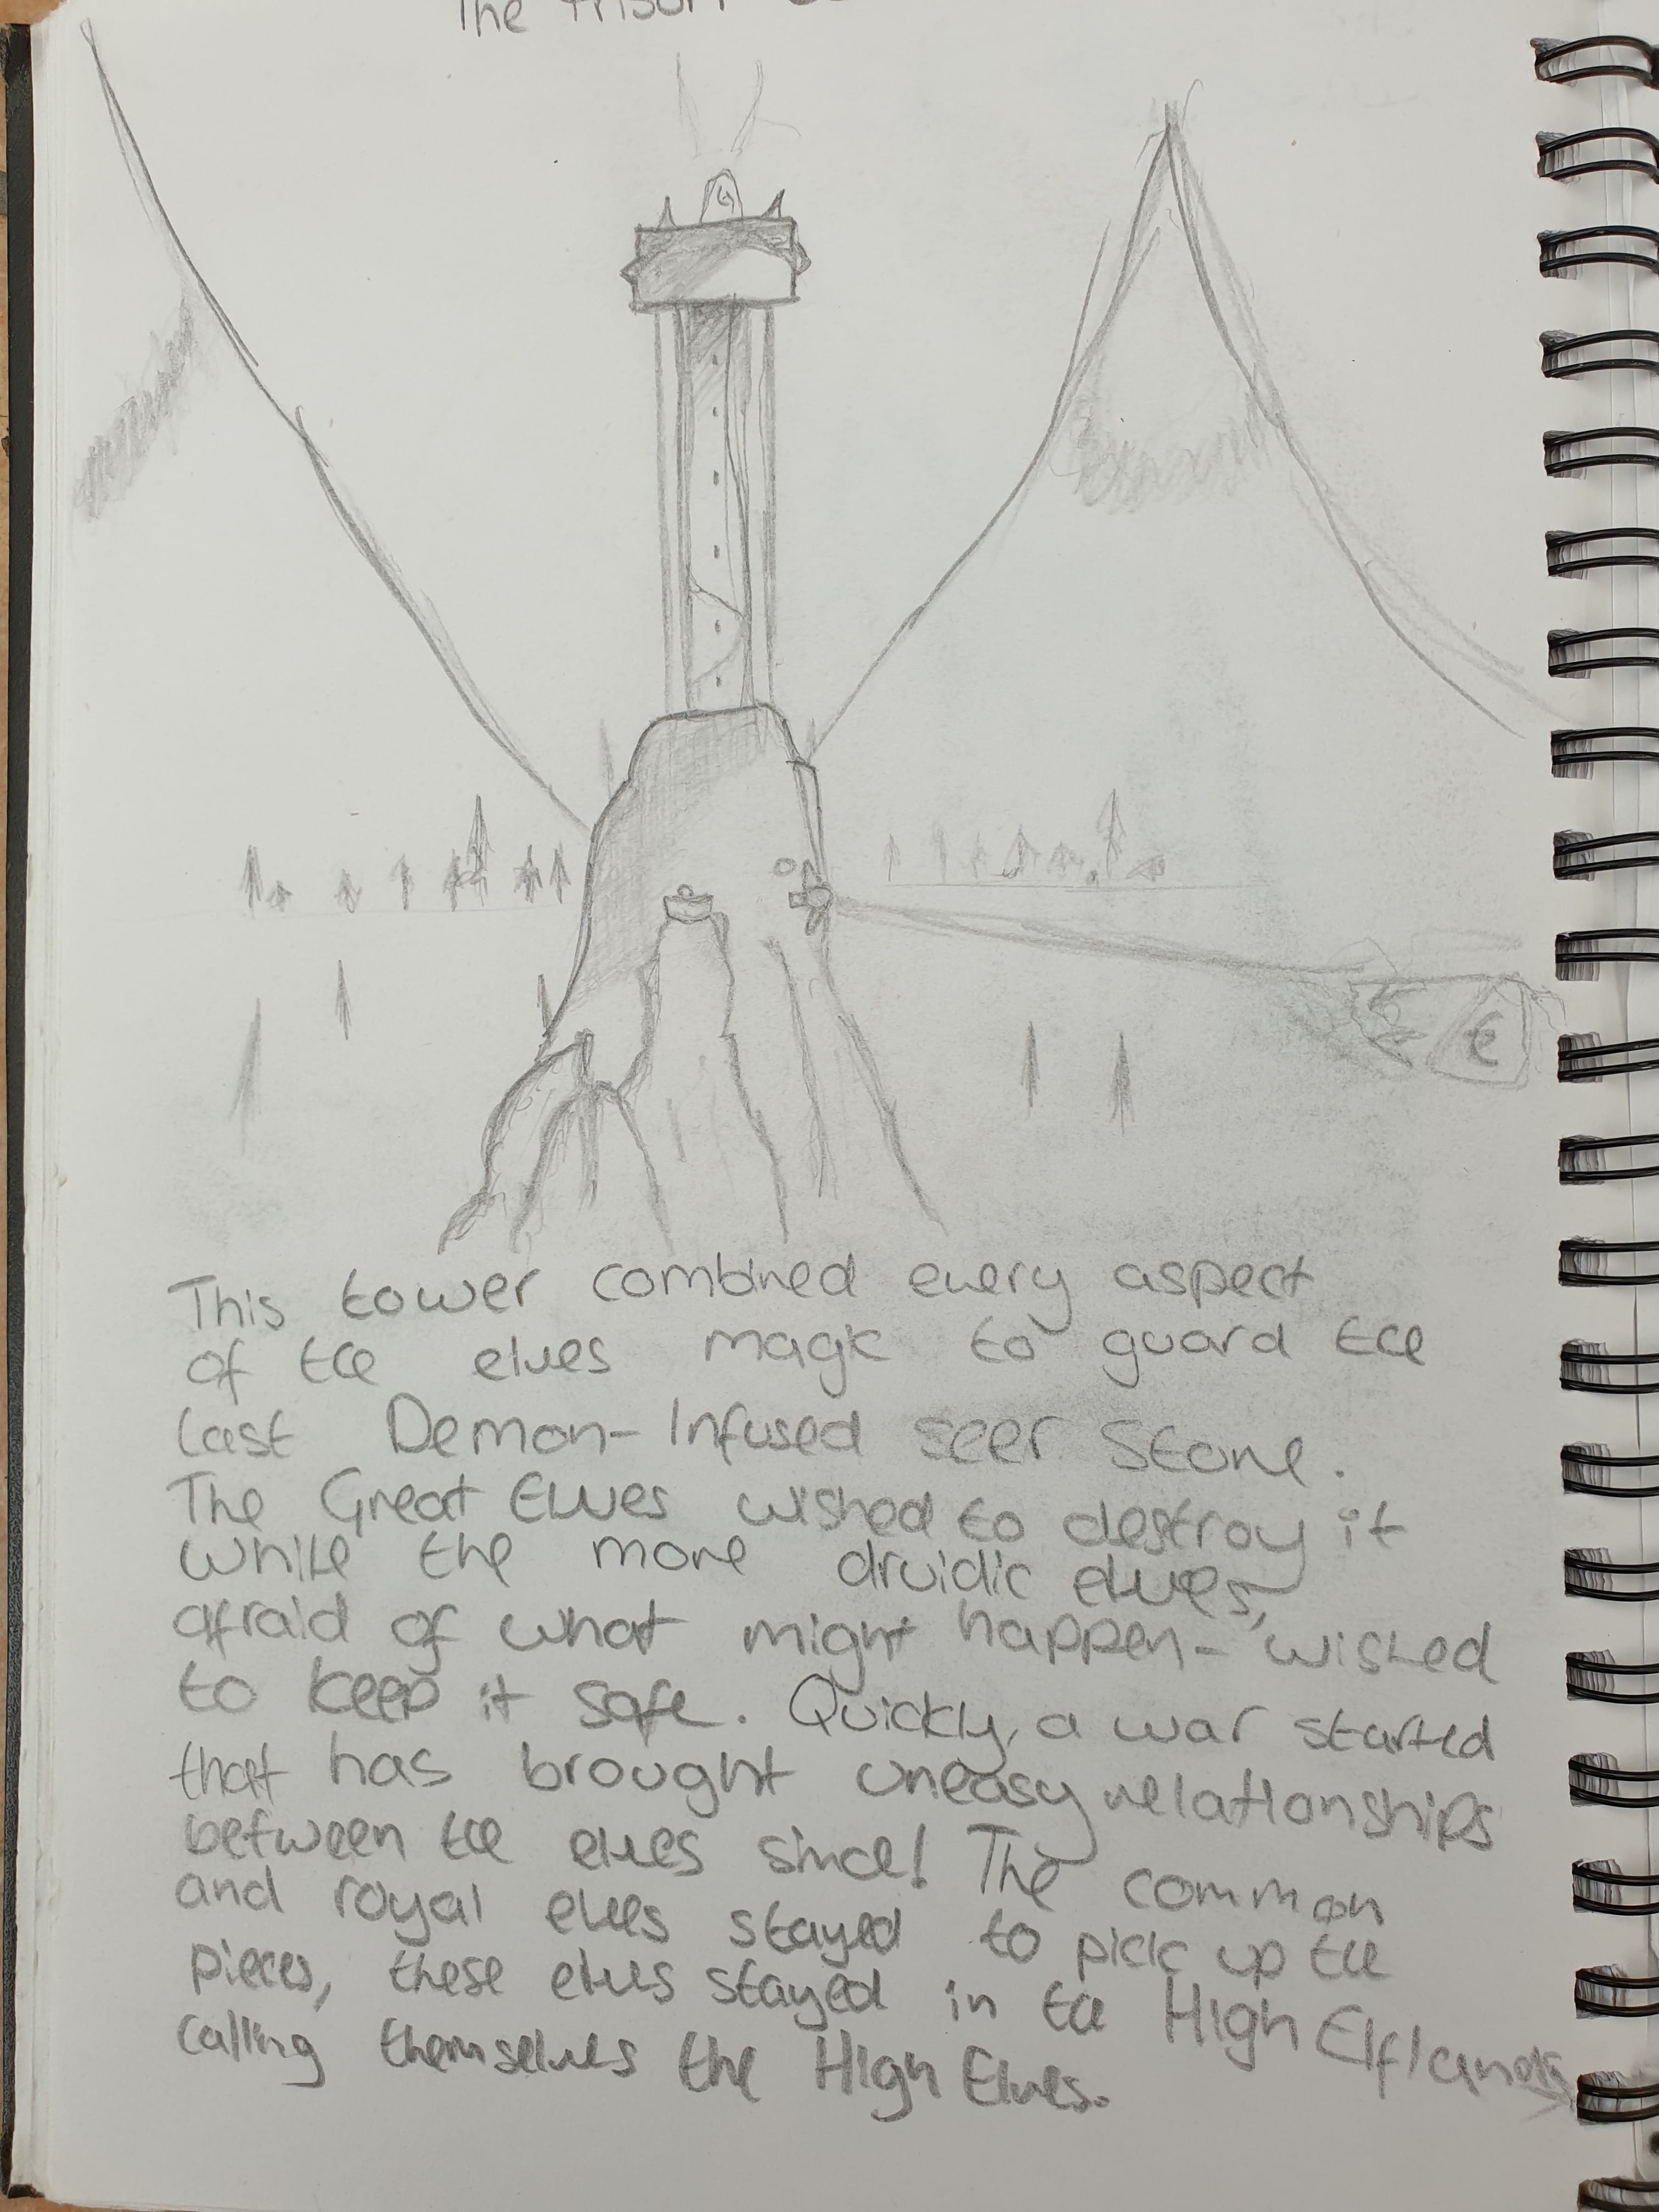 The Prison
This tower combined every aspect
of the elves magic to guard the
last Demon-Infused seer stone.
The Great Elves wished to destroy it
while the more druidic elves,
afraid of what might happen- wished
to keep it safe. Quickly, a war started
that has brought uneasy relationships
between the elves since! The common
and royal elves stayed to pick up the
pieces, these elves stayed in the High Elflands
calling themselves the High Elves.